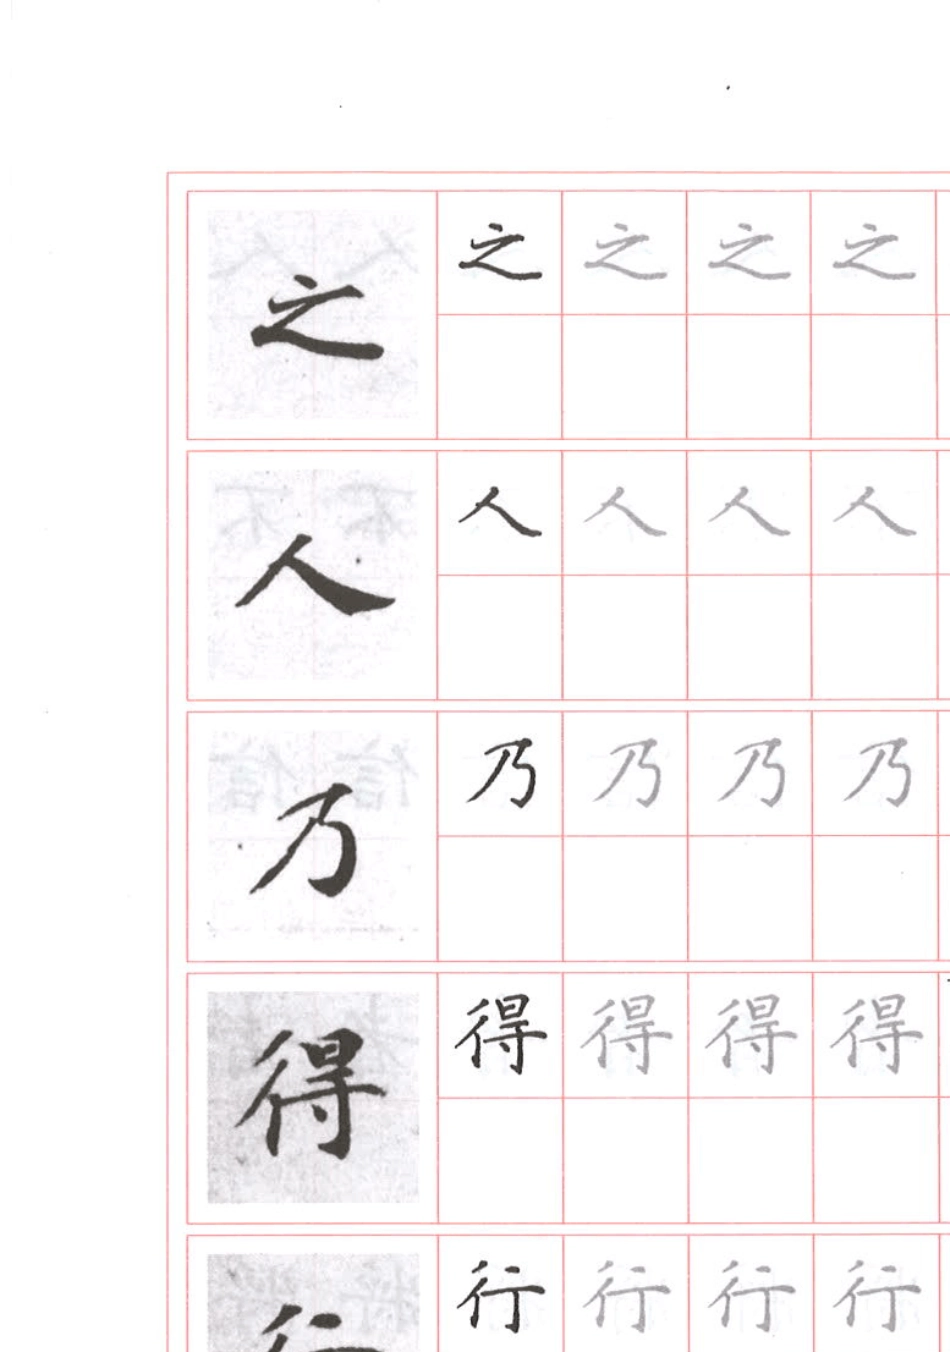 之 之 之 之 之
人 人 人 人 人
乃 乃 乃 乃 乃
得 得 得 得 得
行 行 行 行 行